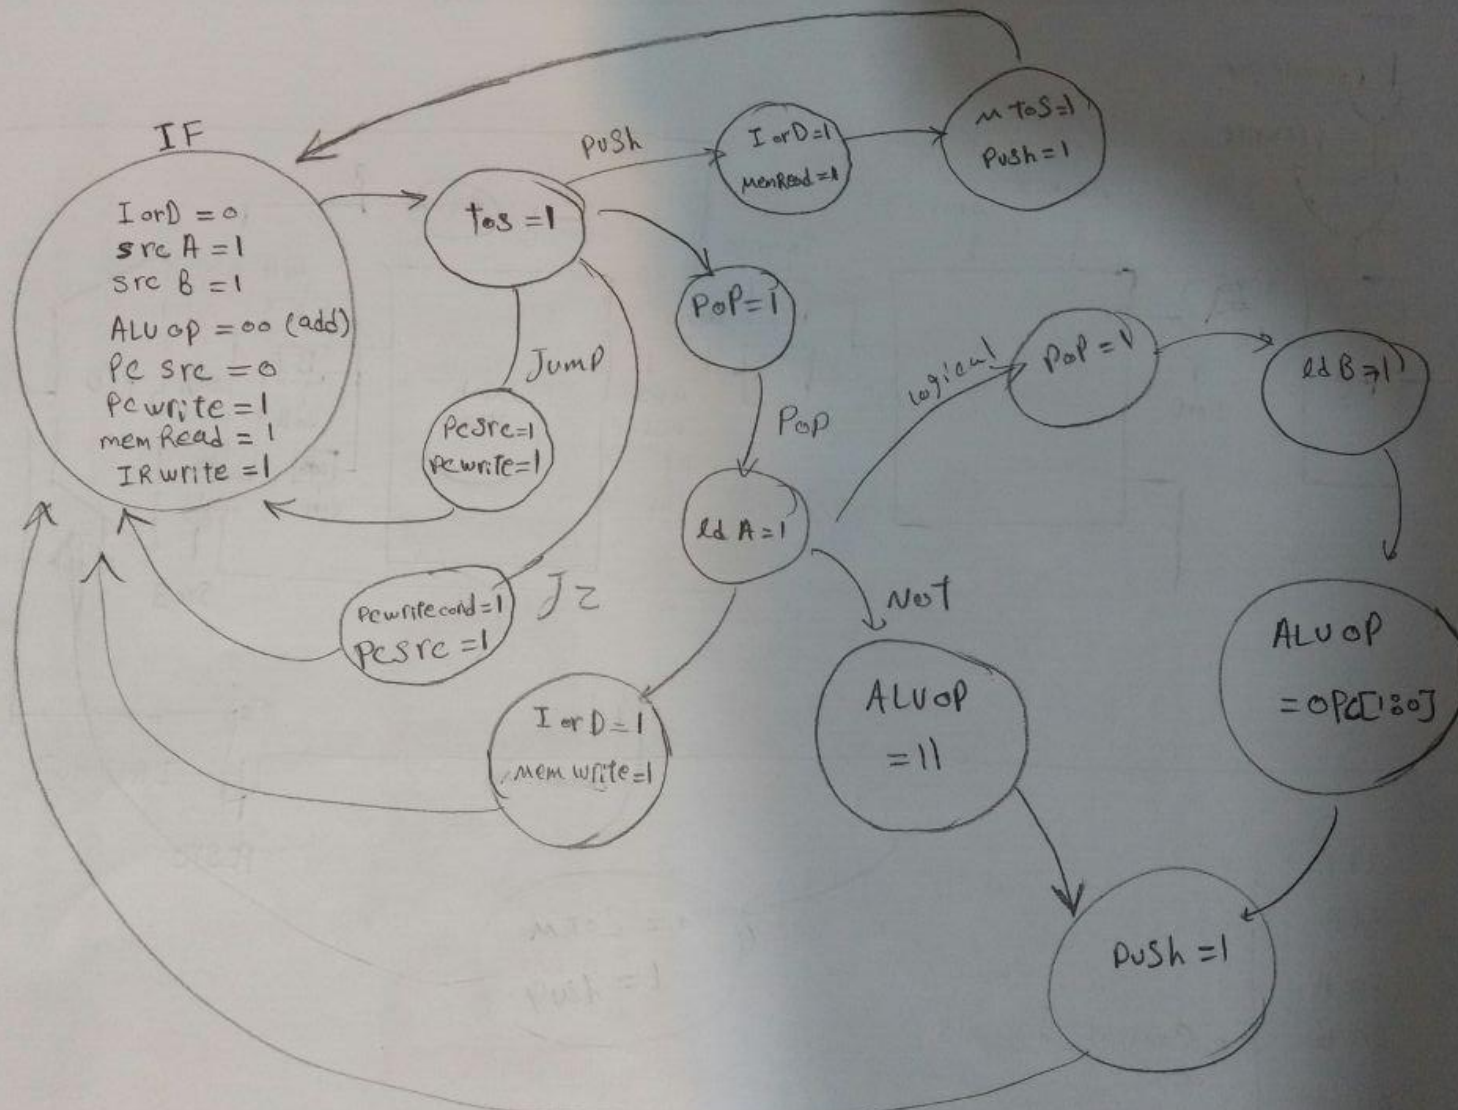 IF
IorD = 0
src A = 1
src B = 1
ALU op = 00 (add)
Pc src = 0
Pcwrite = 1
mem Read = 1
IR write = 1
tos = 1
push
IorD = 1
memRead = 1
M ToS = 1
Push = 1
Jump
Pcsrc = 1
Pcwrite = 1
Jz
Pcwritecond = 1
Pcsrc = 1
POP = 1
Pop
ld A = 1
IorD = 1
mem write = 1
Not
ALUOP
= 11
logical
POP = 1
ld B = 1
ALU OP
= OPC[1:0]
push = 1